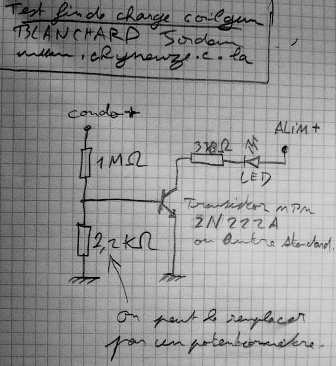 Test fin de charge coilgun
BLANCHARD Jordan
condo +
ALIM+
330Ω
1MΩ
LED
Transistor NPN
2N222A
ou autre standard.
2,2KΩ
on peut le remplacer
par un potentiomètre.